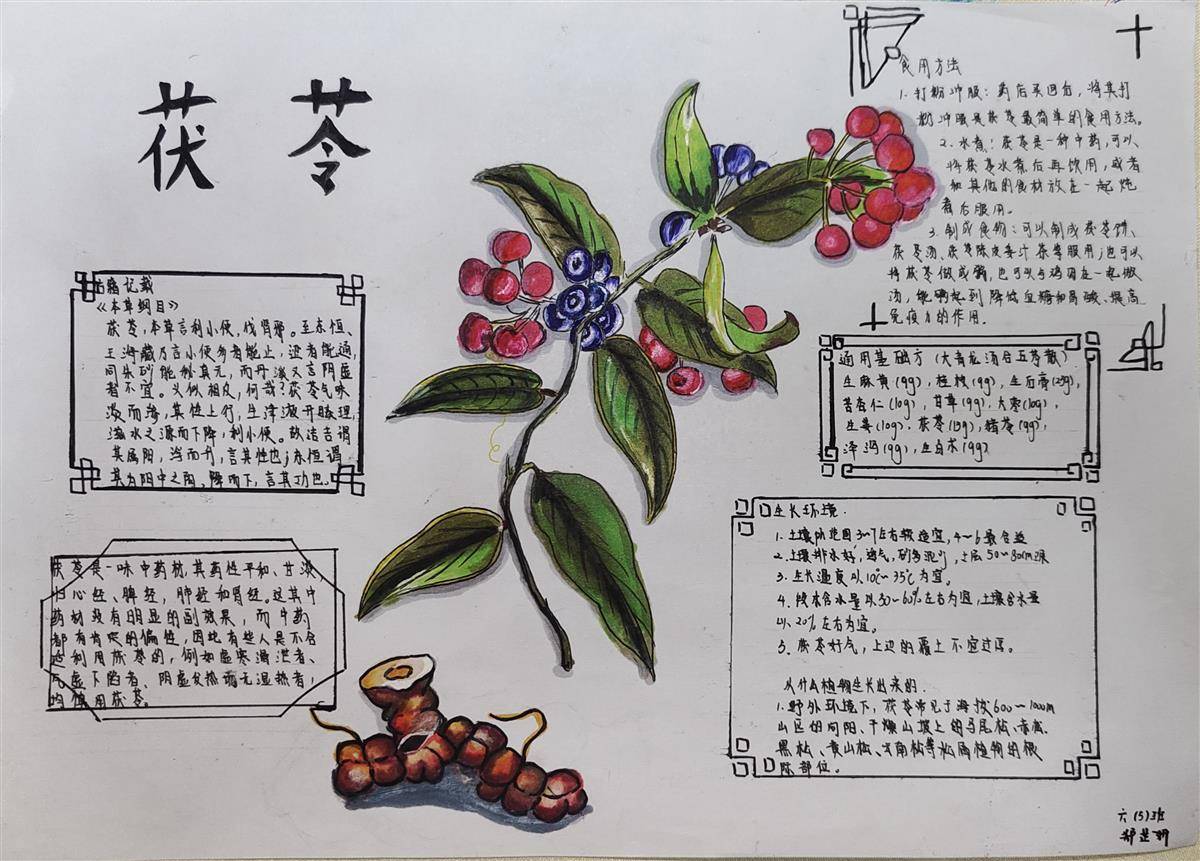 茯 苓
古籍记载
《本草纲目》
茯苓,本草言利小便,伐肾邪。至东恒、
王海藏乃言小便多者能止,涩者能通,
同朱砂能秘真元,而丹溪又言阴虚
者不宜。义似相反,何哉?茯苓气味
淡而渗,其性上行,生津液开腠理,
滋水之源而下降,利小便。故洁古谓
其属阳,浮而升,言其性也;东恒谓
其为阳中之阴,降而下,言其功也。
茯苓是一味中药材,其药性平和、甘淡
归心经、脾经,肺经和肾经。这其中
药材没有明显的副效果,而中药
都有肯定的偏性,因此有些人是不合
适利用茯苓的,例如虚寒滑泄者、
气虚下陷者、阴虚发热而无湿热者,
均慎用茯苓。
食用方法
1.打粉冲服:药店买回后,将其打
粉冲服是茯苓最简单的食用方法。
2.水煮:茯苓是一种中药,可以
将茯苓水煮后再饮用,或者
和其他的食材放在一起炖
煮后服用。
3.制成食物:可以制成茯苓饼、
茯苓汤、茯苓陈皮姜汁茶等服用;也可以
将茯苓做成粥,也可以与鸡肉在一起做
汤,能够起到降低血糖和胃酸、提高
免疫力的作用。
通用基础方(大青龙汤合五苓散)
生麻黄(9g),桂枝(9g),生石膏(25g),
苦杏仁(10g),甘草(9g),大枣(10g),
生姜(10g).茯苓(15g),猪苓(9g),
泽泻(9g),生白术(9g)
生长环境.
1.土壤ph范围3~7左右较适宜,4~6最合适
2.土壤排水好,透气,砂多泥少,土层50~80cm深
3.生长温度以10℃~35℃为宜。
4.段木含水量以50~60%左右为宜,土壤含水量
以20%左右为宜。
5.茯苓好气,上边的覆土不宜过厚。
从什么植物生长出来的.
1.野外环境下,茯苓常见于海拔600~1000m
山区的向阳、干燥山坡上的马尾松、赤松、
黑松、黄山松、云南松等松属植物的根
际部位。
六(5)班